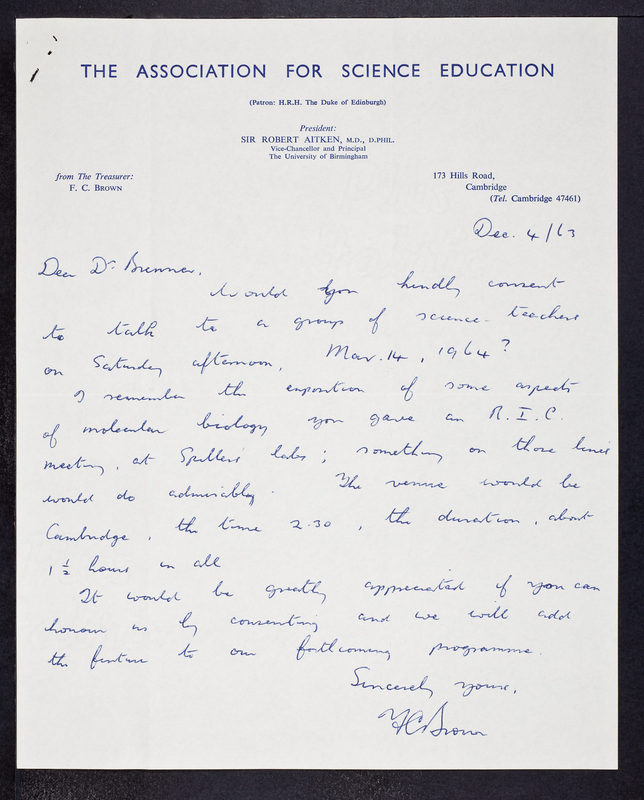 THE ASSOCIATION FOR SCIENCE EDUCATION
(Patron: H.R.H. The Duke of Edinburgh)
President:
SIR ROBERT AITKEN, M.D., D.PHIL.
Vice-Chancellor and Principal
The University of Birmingham
from The Treasurer:
F. C. BROWN
173 Hills Road,
Cambridge
(Tel. Cambridge 47461)
Dec. 4/63
Dear Dr Brenner,
Would you kindly consent
to talk to a group of science-teachers
on Saturday afternoon, Mar. 14, 1964?
I remember the exposition of some aspects
of molecular biology you gave an R.I.C.
meeting, at Spillers' labs; something on those lines
would do admirably. The venue would be
Cambridge, the time 2.30, the duration, about
1 1/2 hours in all
It would be greatly appreciated if you can
honour us by consenting and we will add
the fixture to our forthcoming programme.
Sincerely yours,
F C Brown